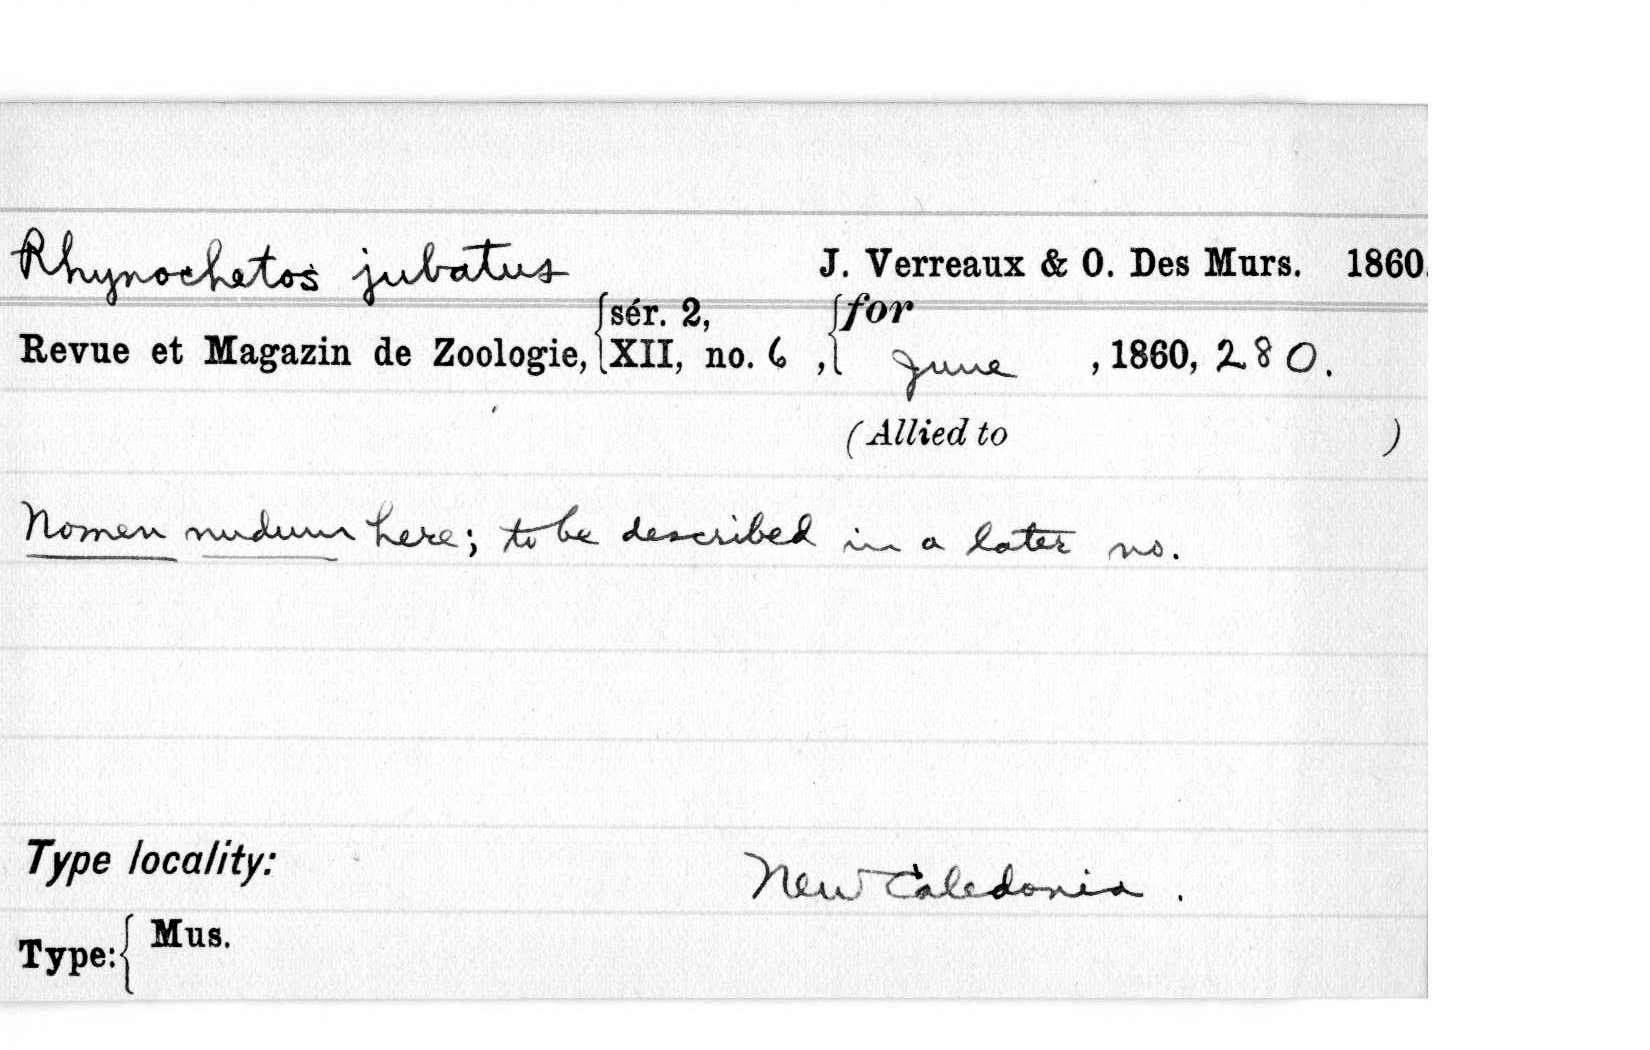 Rhynochetos jubatus J. Verreaux & O. Des Murs. 1860.
Revue et Magazin de Zoologie, {sér. 2, XII, no. 6 , {for June , 1860, 280.
(Allied to )
Nomen nudum here; to be described in a later no.
Type locality: New Caledonia .
Type: { Mus.